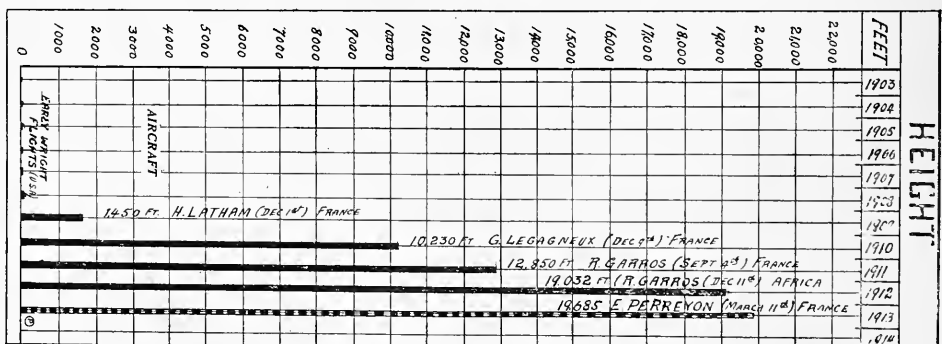 HEIGHT
FEET
22,000
21,000
20,000
19,000
18,000
17,000
16,000
15,000
14,000
13,000
12,000
11,000
10,000
9,000
8,000
7,000
6,000
5,000
4,000
3,000
2,000
1000
0
1903
1904
1905
1906
1907
1908
1909
1910
1911
1912
1913
1914
AIRCRAFT
EARLY WRIGHT
FLIGHTS (USA)
1450 FT. H. LATHAM (DEC 1st) FRANCE
10,230 FT G. LEGAGNEUX (DEC 9th) FRANCE
12,850 FT R. GARROS (SEPT 4th) FRANCE
19,032 FT (R. GARROS (DEC 11th) AFRICA
19,685 E PERREYON (MARCH 11th) FRANCE